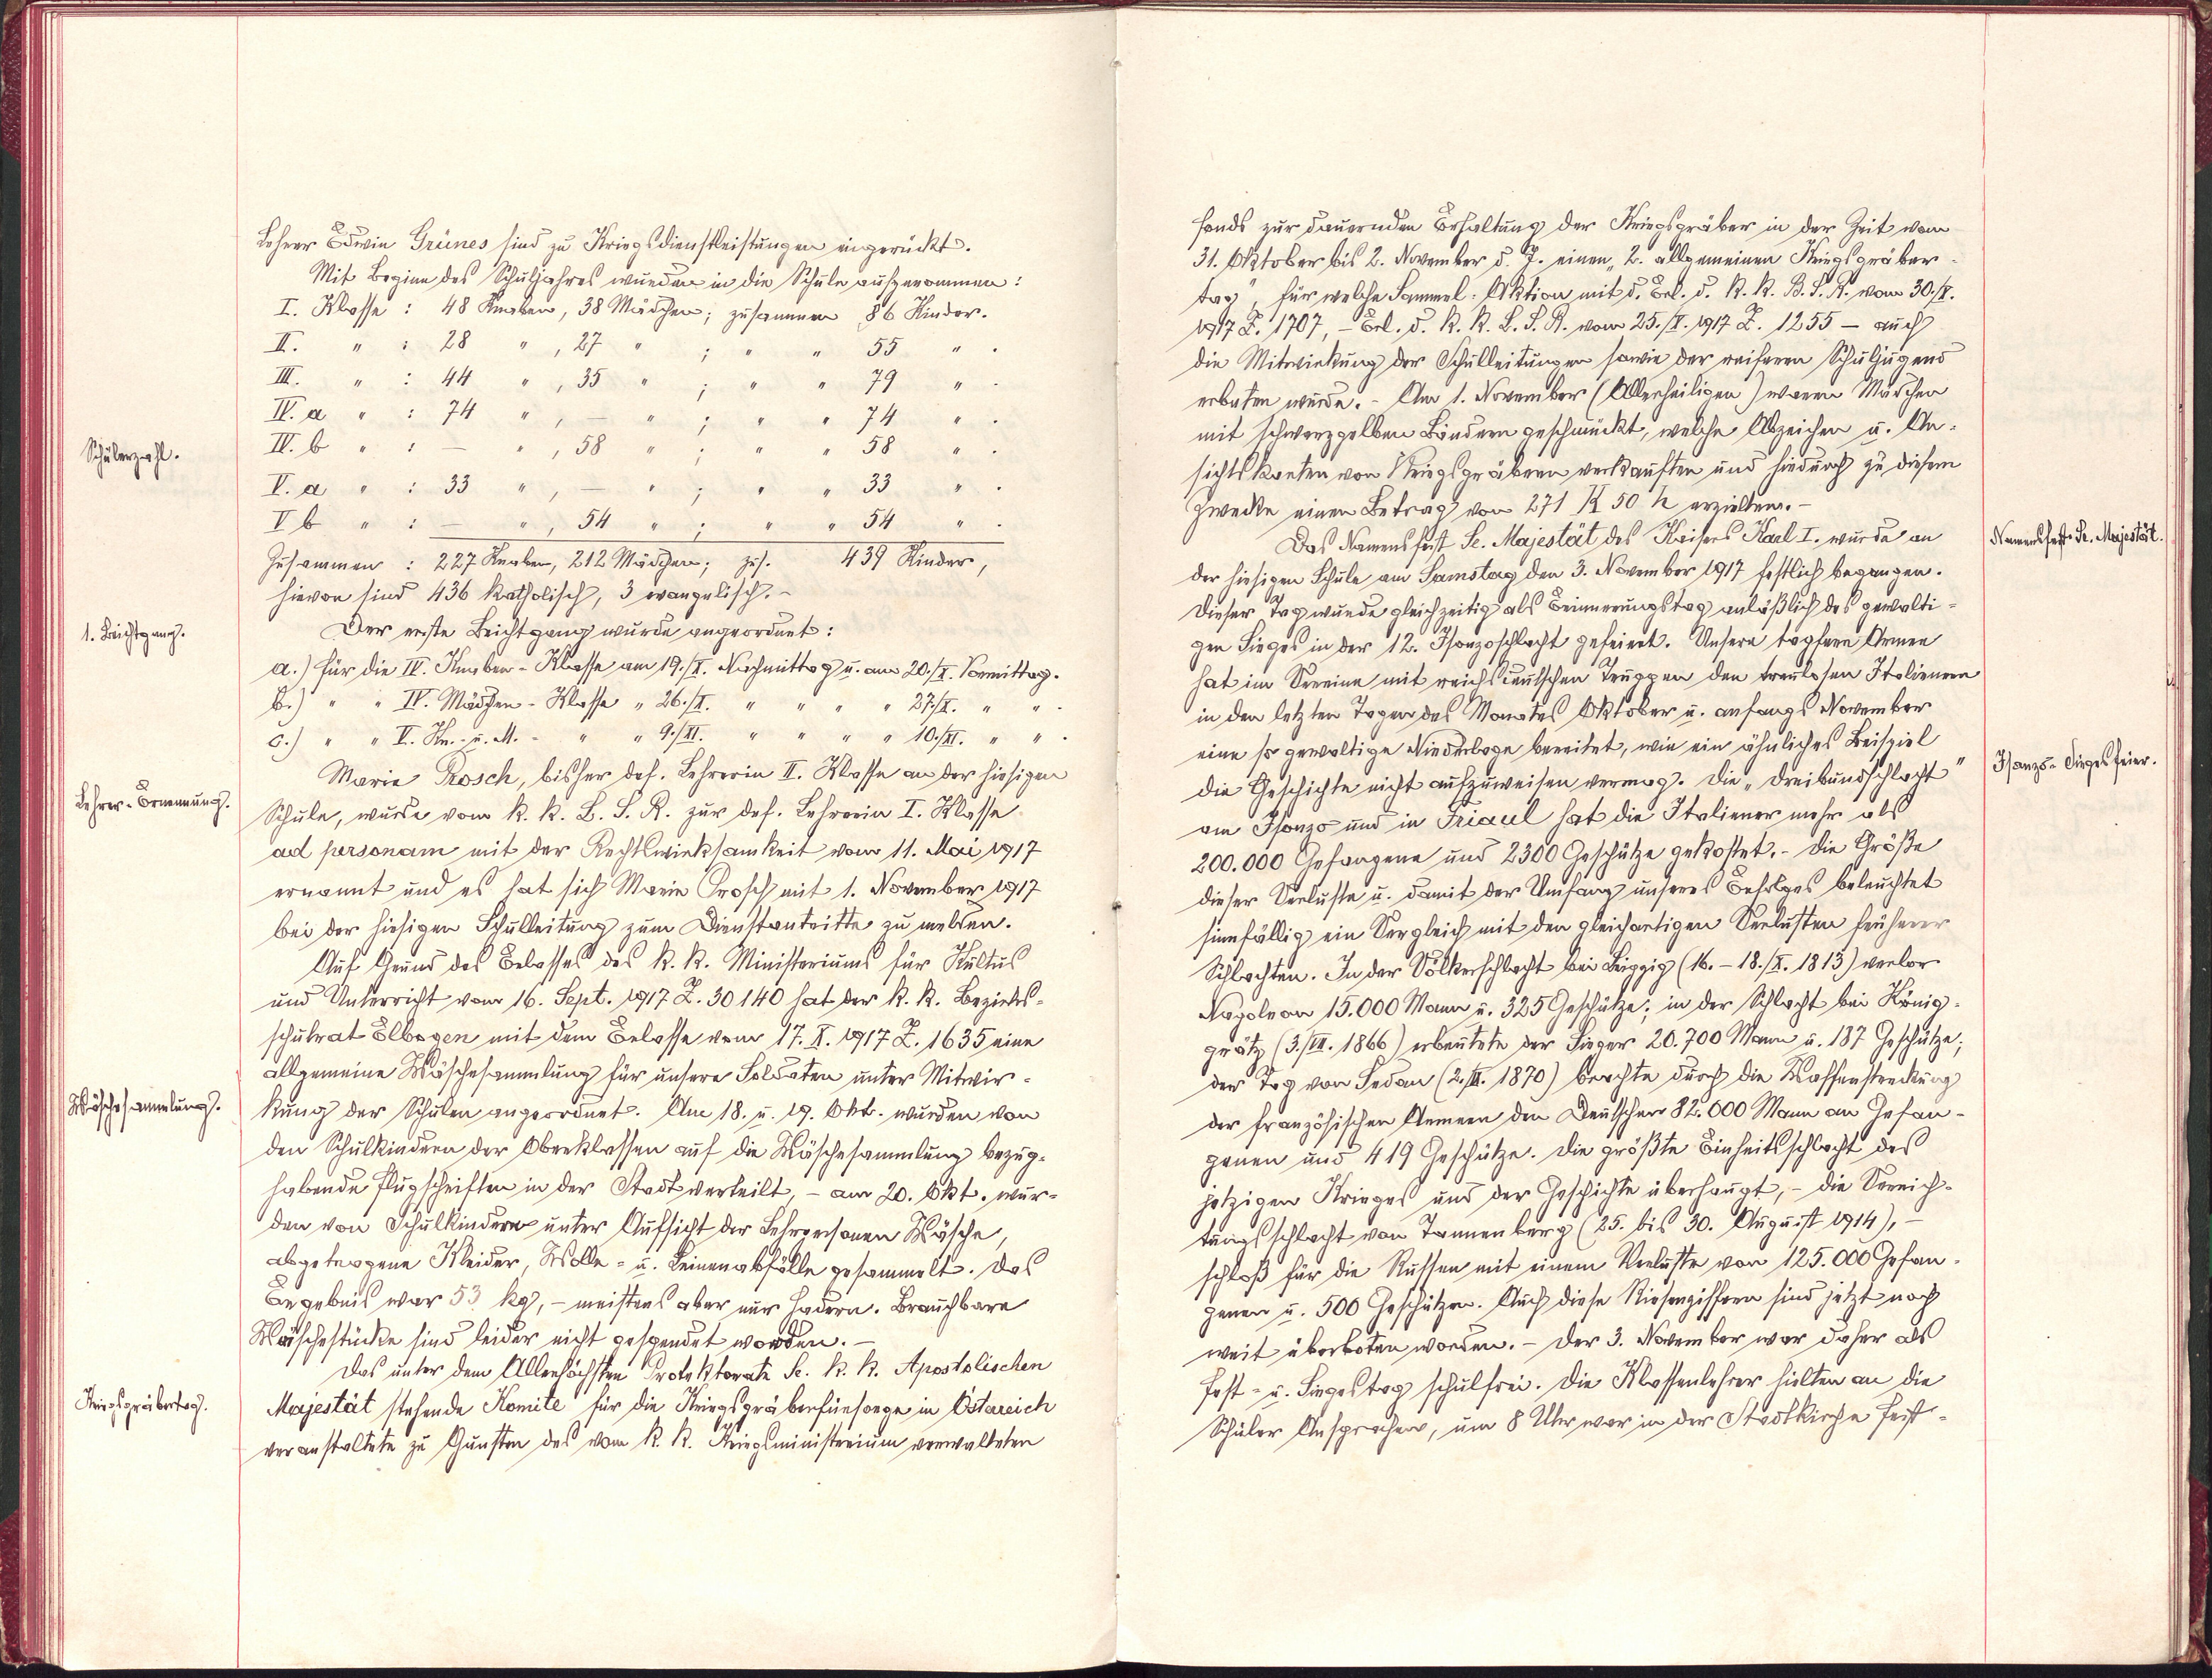 Lehrer Edwin Grünes sind zu Kriegsdienstleistungen eingerückt.
Mit Beginn des Schuljahres wurden in die Schule aufgenommen:
Schülerzahl.
I. Klasse : 48 Knaben, 38 Mädchen; zusammen 86 Kinder.
II. " : 28 " , 27 " ; " " 55 " .
III. " : 44 " , 35 " ; " " 79 " .
IV. a " : 74 " , — " ; " " 74 " .
IV. b " : — " , 58 " ; " " 58 " .
V. a " : 33 " , — " ; " " 33 " .
V b " : — " , 54 " ; " " 54 " .
Zusammen : 227 Knaben, 212 Mädchen; zus. 439 Kinder,
hievon sind 436 katholisch, 3 evangelisch. -
1. Beichtgang.
Der erste Beichtgang wurde angeordnet:
a.) für die IV. Knaben-Klasse am 19./X. Nachmittag u. am 20./X. Vormittag.
b.) " " IV. Mädchen-Klasse " 26./X. " " " " 27./X. " " .
c.) " " V. Kn.- u. M. - " " 9./XI. " " " " 10./XI. " " .
Lehrer-Ernennung.
Marie Prosch, bisher def. Lehrerin II. Klasse an der hiesigen
Schule, wurde vom k. k. L. S. R. zur def. Lehrerin I. Klasse
ad personam mit der Rechtswirksamkeit vom 11. Mai 1917
ernannt und es hat sich Marie Prosch mit 1. November 1917
bei der hiesigen Schulleitung zum Dienstantritte zu melden.
Auf Grund des Erlasses des k. k. Ministeriums für Kultus
und Unterricht vom 16. Sept. 1917 Z. 30140 hat der k. k. Bezirks-
schulrat Elbogen mit dem Erlasse vom 17. X. 1917 Z. 1635 eine
allgemeine Wäschesammlung für unsere Soldaten unter Mitwir-
Wäschesammlung.
kung der Schulen angeordnet. Am 18. u. 19. Okt. wurden von
den Schulkindern der Oberklassen auf die Wäschesammlung bezug-
habende Flugschriften in der Stadt verteilt, - am 20. Okt. wur-
den von Schulkindern unter Aufsicht der Lehrpersonen Wäsche,
abgetragene Kleider, Wolle- u. Leinenabfälle gesammelt. Das
Ergebnis war 53 kg, - meistens aber nur Hadern. Brauchbare
Wäschestücke sind leider nicht gespendet worden. -
Das unter dem Allerhöchsten Protektorate Sr. k. k. Apostolischen
Kriegsgräbertag.
Majestät stehende Komité für die Kriegsgräberfürsorge in Östareich
veranstaltete zu Gunsten des vom k. k. Kriegsministerium verwalteten
fonds zur dauernden Erhaltung der Kriegsgräber in der Zeit vom
31. Oktober bis 2. November d. J. einen „2. allgemeinen Kriegsgräber-
tag", für welche Sammel-Aktion mit d. Erl. d. k. k. B. S. R. vom 30./X.
1917 Z. 1707, - Erl. d. k. k. L. S. R. vom 25./X. 1917 Z. 1255 - auch
die Mitwirkung der Schulleitungen sowie der reiferen Schuljugend
erbeten wurde. - Am 1. November (Allerheiligen) waren Mädchen
mit schwarzgelben Bändern geschmückt, welche Abzeichen u. An-
sichtskarten von Kriegsgräbern verkauften und hiedurch zu diesem
Zwecke einen Betrag von 271 K 50 h erzielten. -
Das Namensfest Sr. Majestät des Kaisers Karl I. wurde an
Namensfest Sr. Majestät.
der hiesigen Schule am Samstag den 3. November 1917 festlich begangen.
Dieser Tag wurde gleichzeitig als Erinnerungstag anläßlich des gewalti-
gen Sieges in der 12. Isonzoschlacht gefeiert. Unsere tapfere Armee
hat im Vereine mit reichsdeutschen Truppen den treulosen Italienern
in den letzten Tagen des Monates Oktober u. anfangs November
eine so gewaltige Niederlage bereitet, wie ein ähnliches Beispiel
Isonzo-Siegesfeier.
die Geschichte nicht aufzuweisen vermag. Die „Dreibundschlacht"
am Isonzo und in Friaul hat die Italiener mehr als
200.000 Gefangene und 2300 Geschütze gekostet. - Die Größe
dieser Verluste u. damit der Umfang unseres Erfolges beleuchtet
sinnfällig ein Vergleich mit den gleichartigen Verlusten früherer
Schlachten. In der Völkerschlacht bei Leipzig (16. - 18./X. 1813) verlor
Napoleon 15.000 Mann u. 325 Geschütze; in der Schlacht bei König-
grätz (3./VII. 1866) erbeutete der Sieger 20.700 Mann u. 187 Geschütze;
der Tag von Sedan (2./IX. 1870) brachte durch die Waffenstreckung
der französischen Armeen den Deutschen 82.000 Mann an Gefan-
genen und 419 Geschütze. Die größte Einheitsschlacht des
jetzigen Krieges und der Geschichte überhaupt, - die Vernich-
tungsschlacht von Tannenberg (25. bis 30. August 1914), -
schloß für die Russen mit einem Verluste von 125.000 Gefan-
genen u. 500 Geschützen. Auch diese Riesenziffern sind jetzt noch
weit überboten worden. - Der 3. November war daher als
Fest- u. Siegestag schulfrei. Die Klassenlehrer hielten an die
Schüler Ansprachen, um 8 Uhr war in der Stadtkirche Fest-